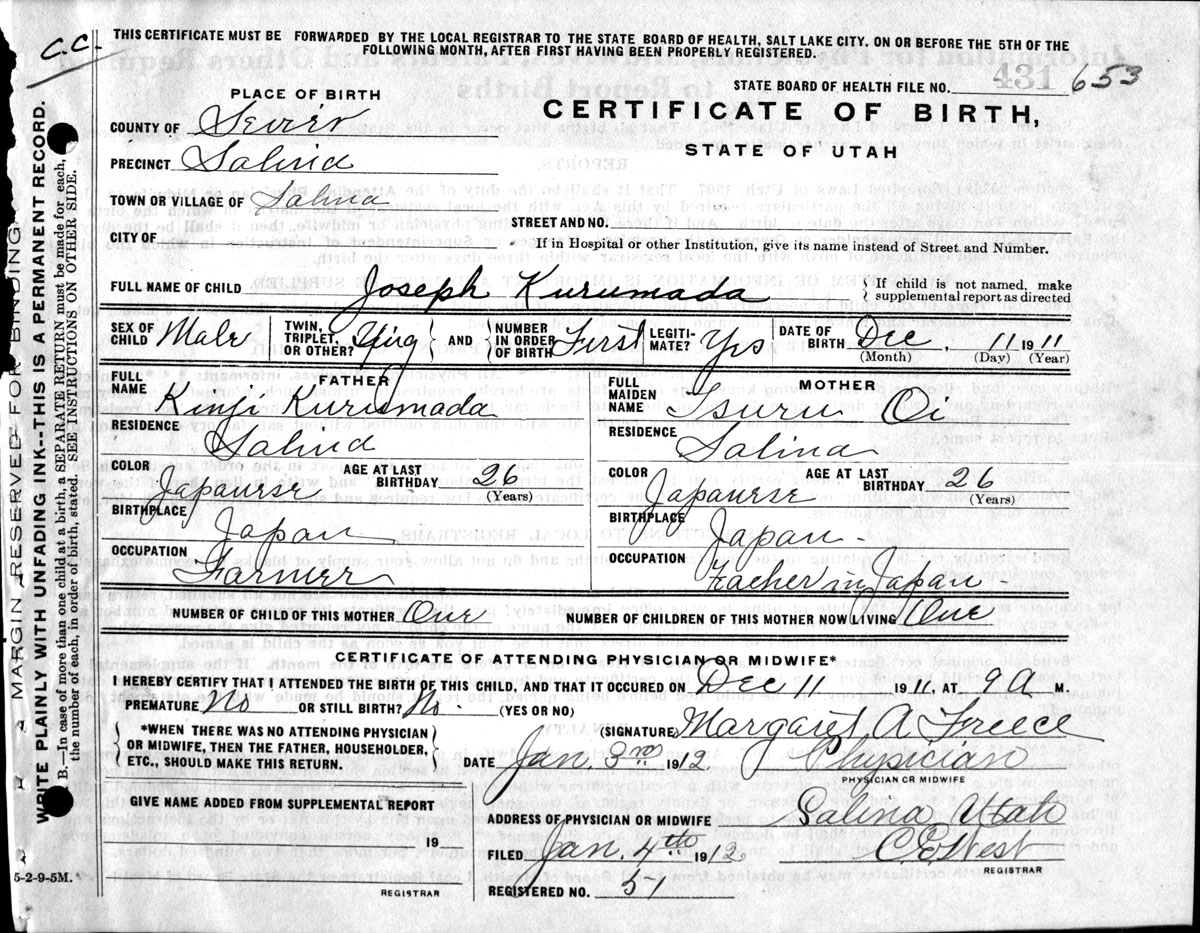 C.C.
THIS CERTIFICATE MUST BE FORWARDED BY THE LOCAL REGISTRAR TO THE STATE BOARD OF HEALTH, SALT LAKE CITY, ON OR BEFORE THE 5TH OF THE
FOLLOWING MONTH, AFTER FIRST HAVING BEEN PROPERLY REGISTERED
STATE BOARD OF HEALTH FILE NO. 431 653
PLACE OF BIRTH
CERTIFICATE OF BIRTH,
STATE OF UTAH
COUNTY OF Sevier
PRECINCT Salina
TOWN OR VILLAGE OF Salina
STREET AND NO.
CITY OF
If in Hospital or other Institution, give its name instead of Street and Number.
FULL NAME OF CHILD Joseph Kurumada { If child is not named, make
supplemental report as directed
SEX OF CHILD Male TWIN, TRIPLET, OR OTHER? AND NUMBER IN ORDER OF BIRTH First LEGITI-MATE? Yes DATE OF BIRTH Dec, 11 1911
(Month) (Day) (Year)
FATHER
FULL NAME Kinji Kurumada
RESIDENCE
Salina
COLOR Japanese AGE AT LAST BIRTHDAY 26
(Years)
BIRTHPLACE
Japan
OCCUPATION
Farmer
MOTHER
FULL MAIDEN NAME Tsuru Oi
RESIDENCE
Salina
COLOR Japanese AGE AT LAST BIRTHDAY 26
(Years)
BIRTHPLACE
Japan
OCCUPATION
Teacher in Japan
NUMBER OF CHILD OF THIS MOTHER One NUMBER OF CHILDREN OF THIS MOTHER NOW LIVING One
CERTIFICATE OF ATTENDING PHYSICIAN OR MIDWIFE*
I HEREBY CERTIFY THAT I ATTENDED THE BIRTH OF THIS CHILD, AND THAT IT OCCURED ON Dec 11 1911, AT 9 A M.
PREMATURE No OR STILL BIRTH? No. (YES OR NO)
*WHEN THERE WAS NO ATTENDING PHYSICIAN
OR MIDWIFE, THEN THE FATHER, HOUSEHOLDER,
ETC., SHOULD MAKE THIS RETURN.
(SIGNATURE) Margaret A Freece
DATE Jan. 3rd 1912 Physician
PHYSICIAN OR MIDWIFE
GIVE NAME ADDED FROM SUPPLEMENTAL REPORT
19
REGISTRAR
ADDRESS OF PHYSICIAN OR MIDWIFE Salina Utah
FILED Jan. 4th 1912 C E West
REGISTRAR
REGISTERED NO. 51
5-2-9-5M.
MARGIN RESERVED FOR BINDING.
WRITE PLAINLY WITH UNFADING INK--THIS IS A PERMANENT RECORD.
B.—In case of more than one child at a birth, a SEPARATE RETURN must be made for each,
the number of each, in order of birth, stated. SEE INSTRUCTIONS ON OTHER SIDE.